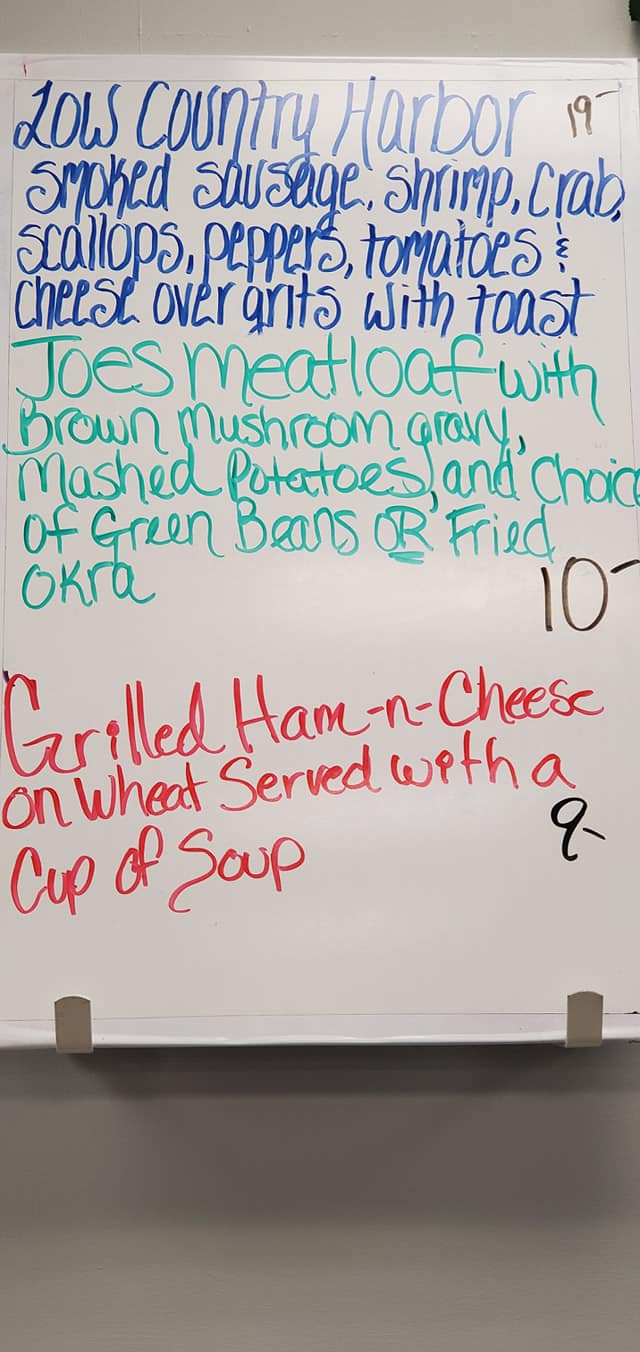 Low Country Harbor 19-
smoked sausage, shrimp, crab,
scallops, peppers, tomatoes &
cheese over grits with toast
Joes meatloaf with
Brown mushroom gravy,
Mashed Potatoes, and Choice
of Green Beans OR Fried
okra
10-
Grilled Ham-n-Cheese
on Wheat Served with a
9-
Cup of Soup